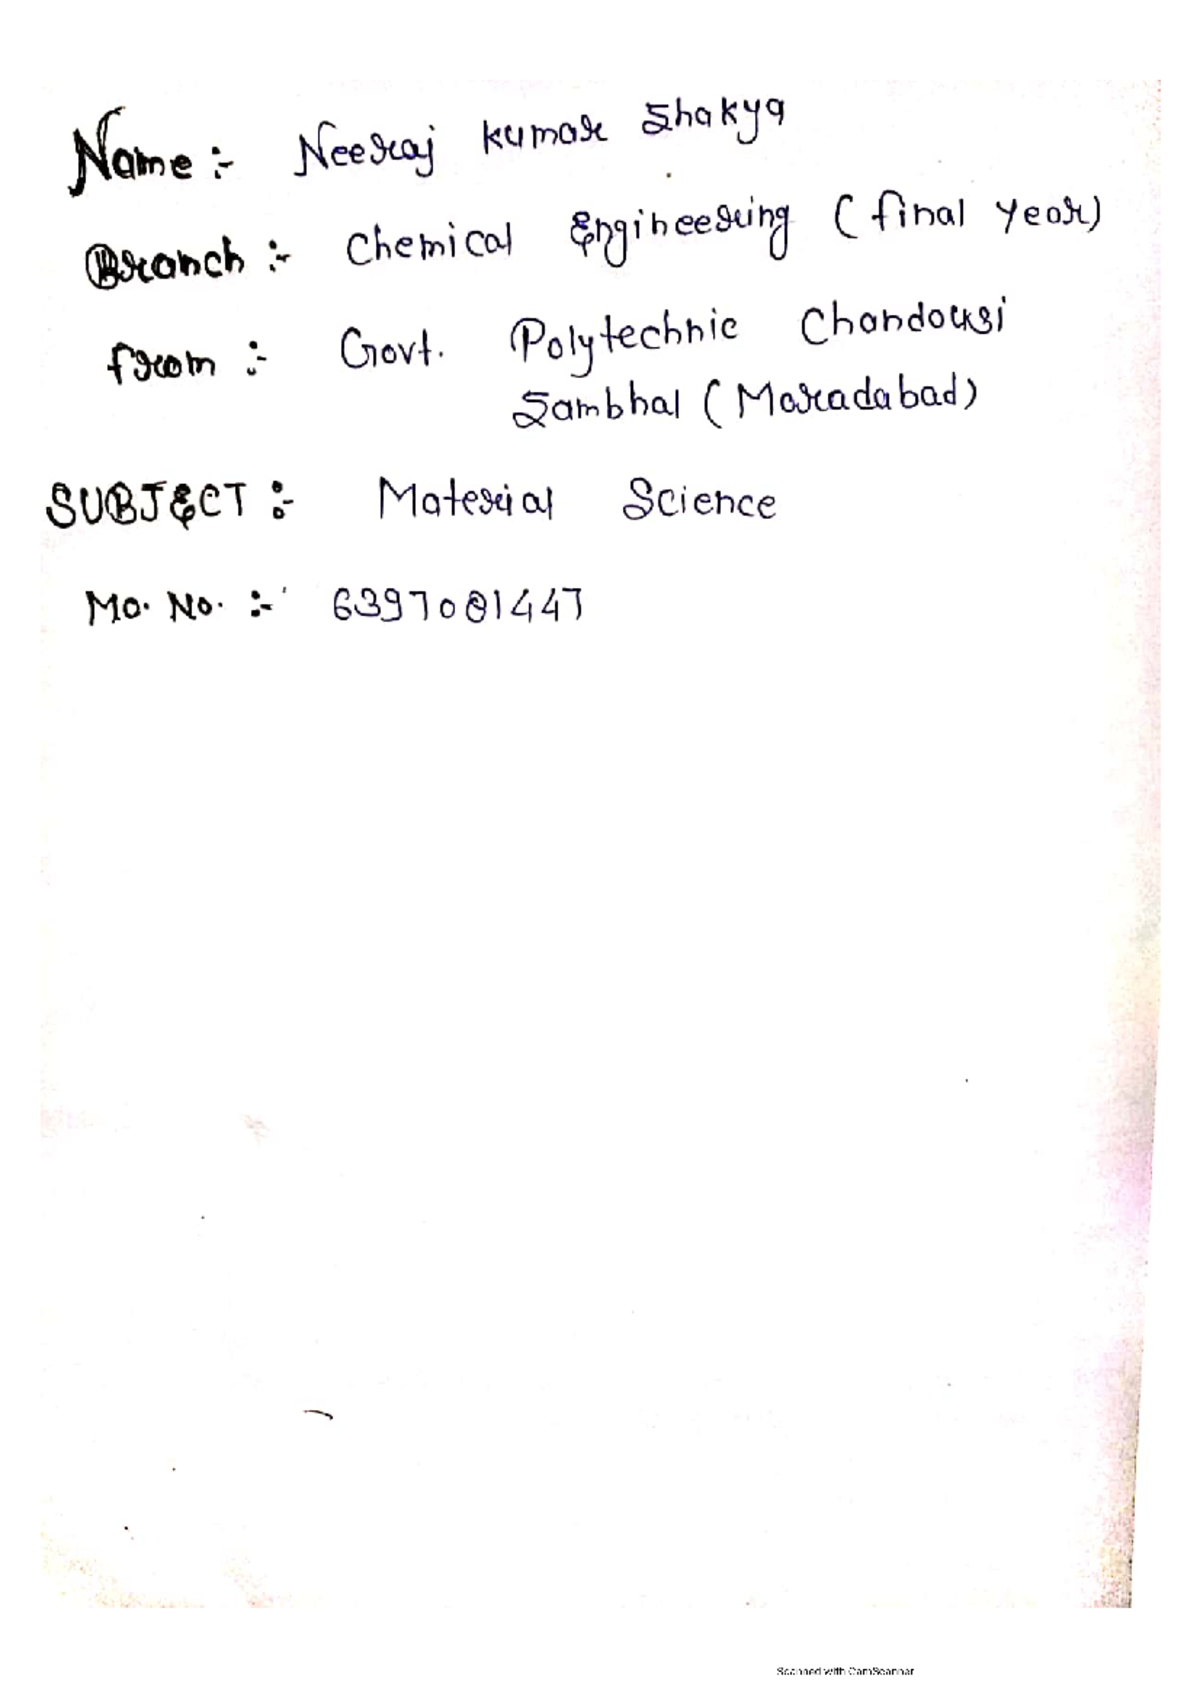 Name :- Neeraj kumar Shakya
Branch :- Chemical Engineering (final year)
from :- Govt. Polytechnic Chandousi
Sambhal (Moradabad)
SUBJECT :- Material Science
Mo. No. :- 6397081447
Scanned with CamScanner